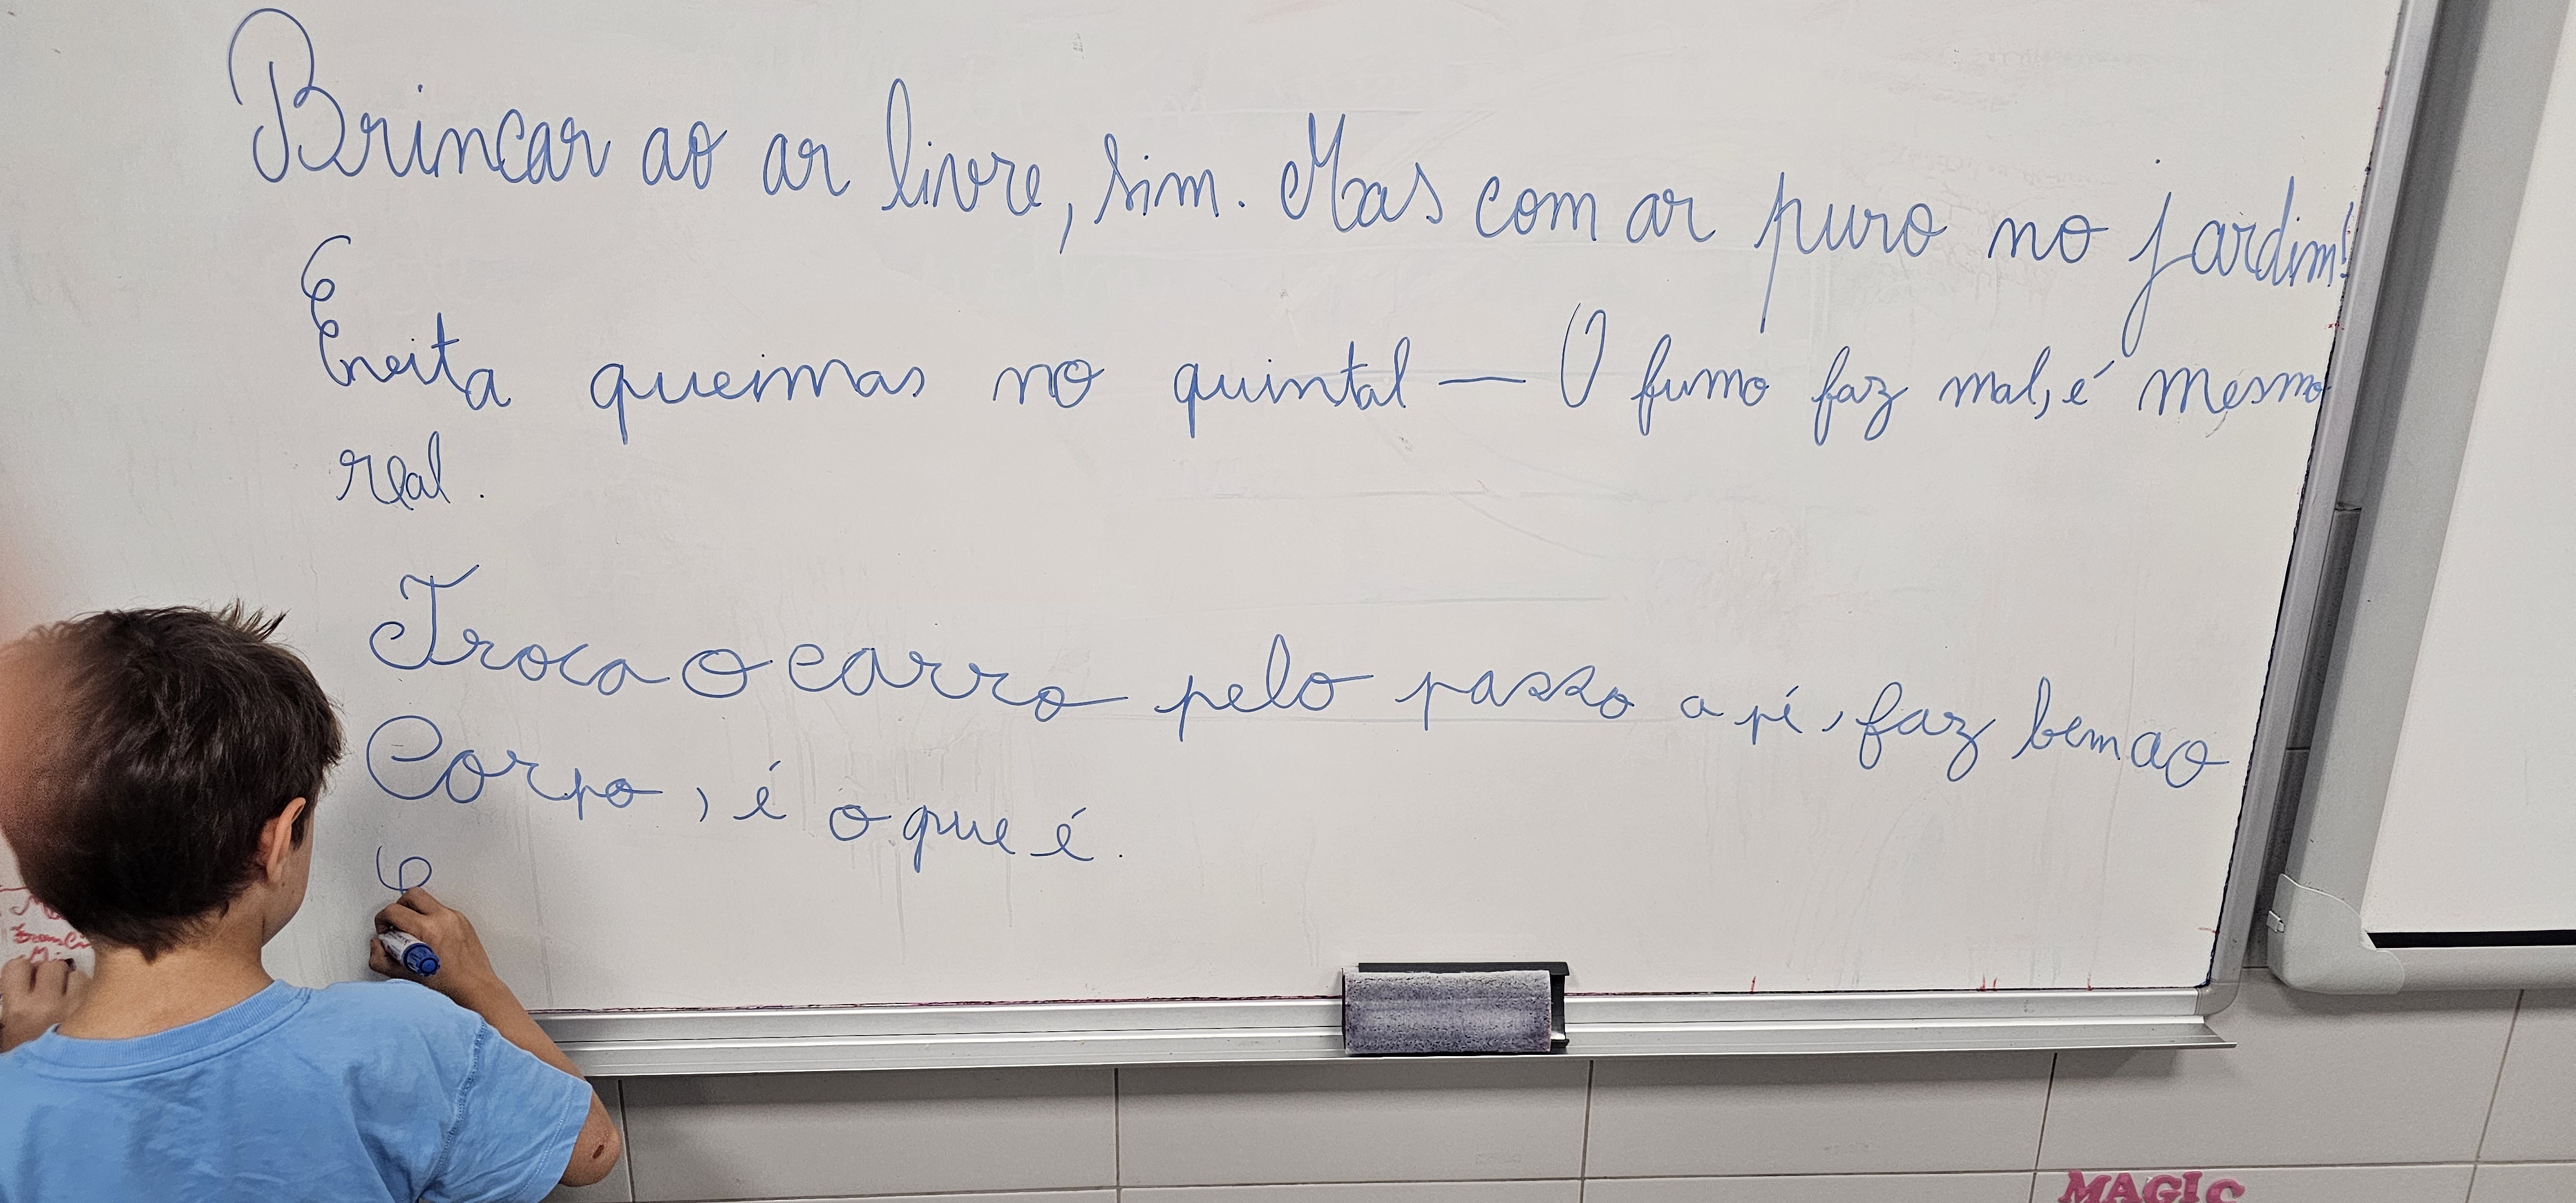 Brincar ao ar livre, sim. Mas com ar puro no jardim!
Evita queimas no quintal — O fumo faz mal, é mesmo
real.
Troca o carro pelo passo a pé, faz bem ao
Corpo, é o que é.
MAGIC